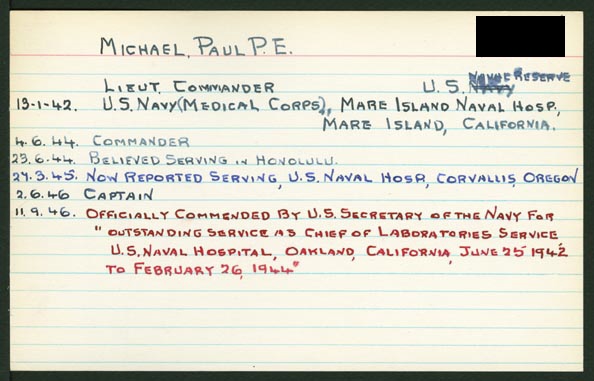 MICHAEL, PAUL P. E.
LIEUT. COMMANDER U.S. NAVAL RESERVE
19-1-42. U.S. NAVY (MEDICAL CORPS), MARE ISLAND NAVAL HOSP,
MARE ISLAND, CALIFORNIA.
4.6.44. COMMANDER
23.6.44. BELIEVED SERVING IN HONOLULU.
27.3.45. NOW REPORTED SERVING, U.S. NAVAL HOSP, CORVALLIS, OREGON
2.6.46 CAPTAIN
11.9.46. OFFICIALLY COMMENDED BY U.S. SECRETARY OF THE NAVY FOR
"OUTSTANDING SERVICE AS CHIEF OF LABORATORIES SERVICE
U.S. NAVAL HOSPITAL, OAKLAND, CALIFORNIA, JUNE 25 1942
TO FEBRUARY 26, 1944"